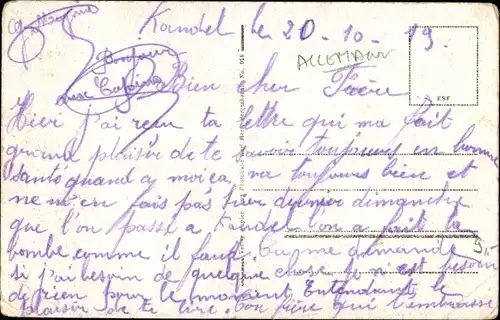 Kandel le 20-10-19.
ALLEMAGNE
Bonjour
aux Copains
Bien cher Frère
ESF
Hier j'ai reçu ta lettre qui ma fait
grand plaisir de te savoir toujours en bonne
santé quand a moi ça va toujours bien et
ne m'en fais pas hier dernier dimanche
que l'on passe a Kandel l'on a fait la
bombe comme il faut. Tu me demande
si j'ai besoin de quelque chose je n'est besoin
de rien pour le moment Entendant le
plaisir de te lire. Ton frère qui t'embrasse